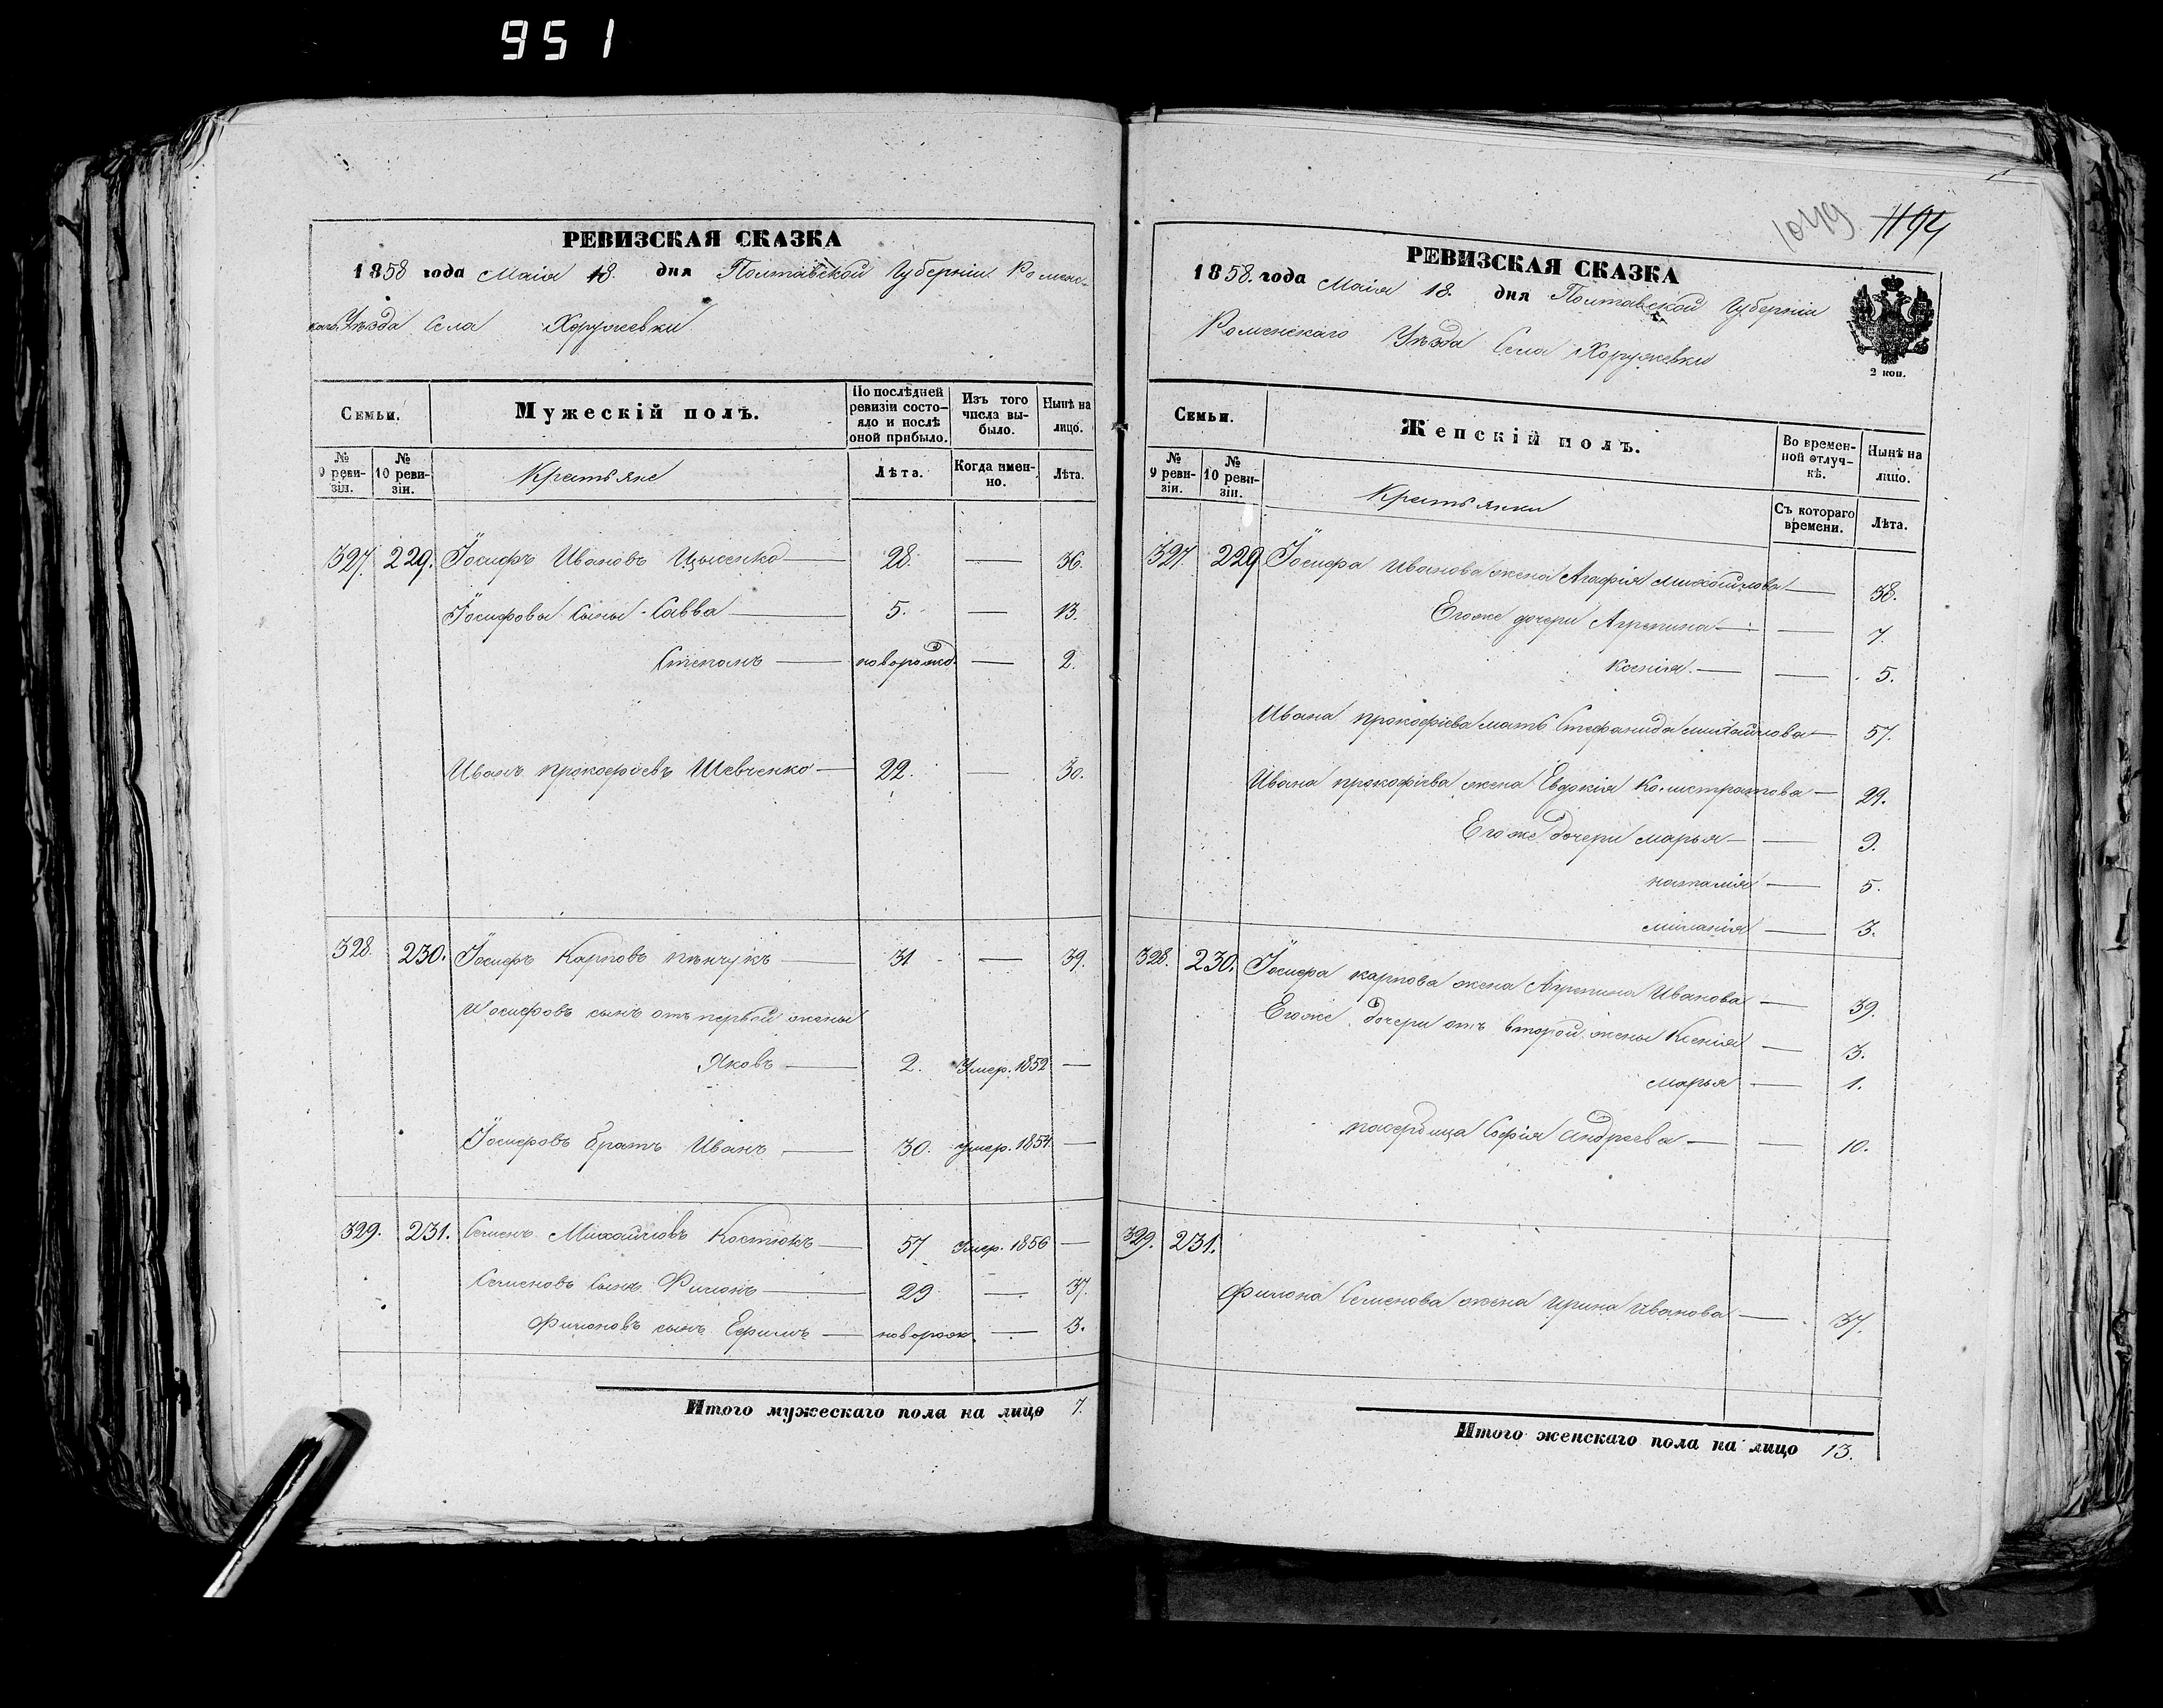 951
РЕВИЗСКАЯ СКАЗКА
1858 года Маія 18. дня Полтавской Губерніи Роменс-
каго Уѣзда Села Хоружевки
Семьи. Мужескій полъ. По послѣдней ревизіи состояло и послѣ оной прибыло. Изъ того числа выбыло. Нынѣ на лицо.
№ 9 ревизіи. № 10 ревизіи. Крестьяне Лѣта. Когда именно. Лѣта.
327. 229. Іосифъ Ивановъ — 28. — 36.
Іосифовы Сыны Савва — 5. — 13.
Степанъ — новорожд. — 2.
Иванъ Прокофіевъ Шевченко — 22. — 30.
328. 230. Іосифъ Карповъ — 31 — 39.
Иосифовъ сынъ отъ первой жены
Яковъ — 2. Умер. 1852 —
Іосифовъ братъ Иванъ — 30. Умер. 1854 —
329. 231. Семенъ Михайловъ Костюкъ — 57 Умер. 1856 —
Семеновъ Сынъ Филонъ — 29 — 37.
Филоновъ сынъ Ефимъ — новорож. — 3.
Итого мужескаго пола на лицо 7.
1049 1194
РЕВИЗСКАЯ СКАЗКА
1858. года Маія 18. дня Полтавской Губерніи
Роменскаго Уѣзда Села Хоружевки
2 коп.
Семьи. Женскій полъ. Во временной отлучкѣ. Нынѣ на лицо.
№ 9 ревизіи. № 10 ревизіи. Крестьянки Съ котораго времени. Лѣта.
327. 229 Іосифа Иванова жена Агафія Михайлова — 38.
Егоже дочери Агрепина — — 7.
Ксенія. — — 5.
Ивана Прокофіева мать Стефанида Михайлова — 57.
Ивана Прокофіева жена Евдокія Калистратова — 29.
Егоже дочери Марья — — 9.
Наталія — 5.
Миланія — 3.
328. 230. Іосифа Карпова жена Агрепина Иванова — 39.
Егоже дочери отъ второй жены Ксенія — 3.
Марья — 1.
Падчерица Софія Андреева — — 10.
329. 231.
Филона Семенова жена Ирина Иванова — 37.
Итого женскаго пола на лицо 13.